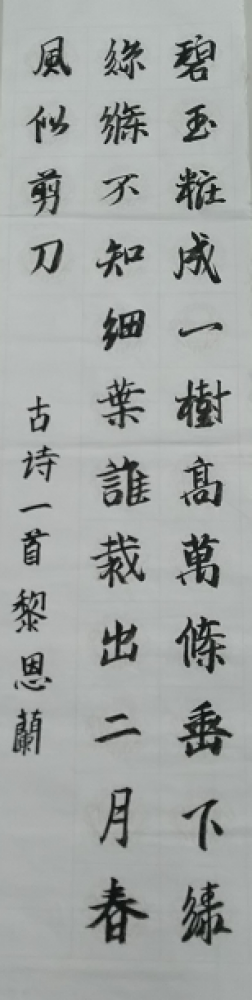 碧玉粧成一樹高萬條垂下綠
絲絛不知細葉誰裁出二月春
風似剪刀
古诗一首黎恩蘭